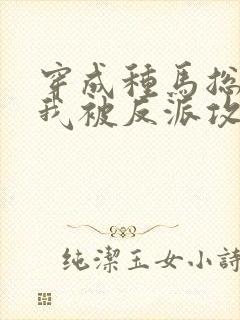 穿成種馬捴
我被反派攻
纯潔玉女小詩